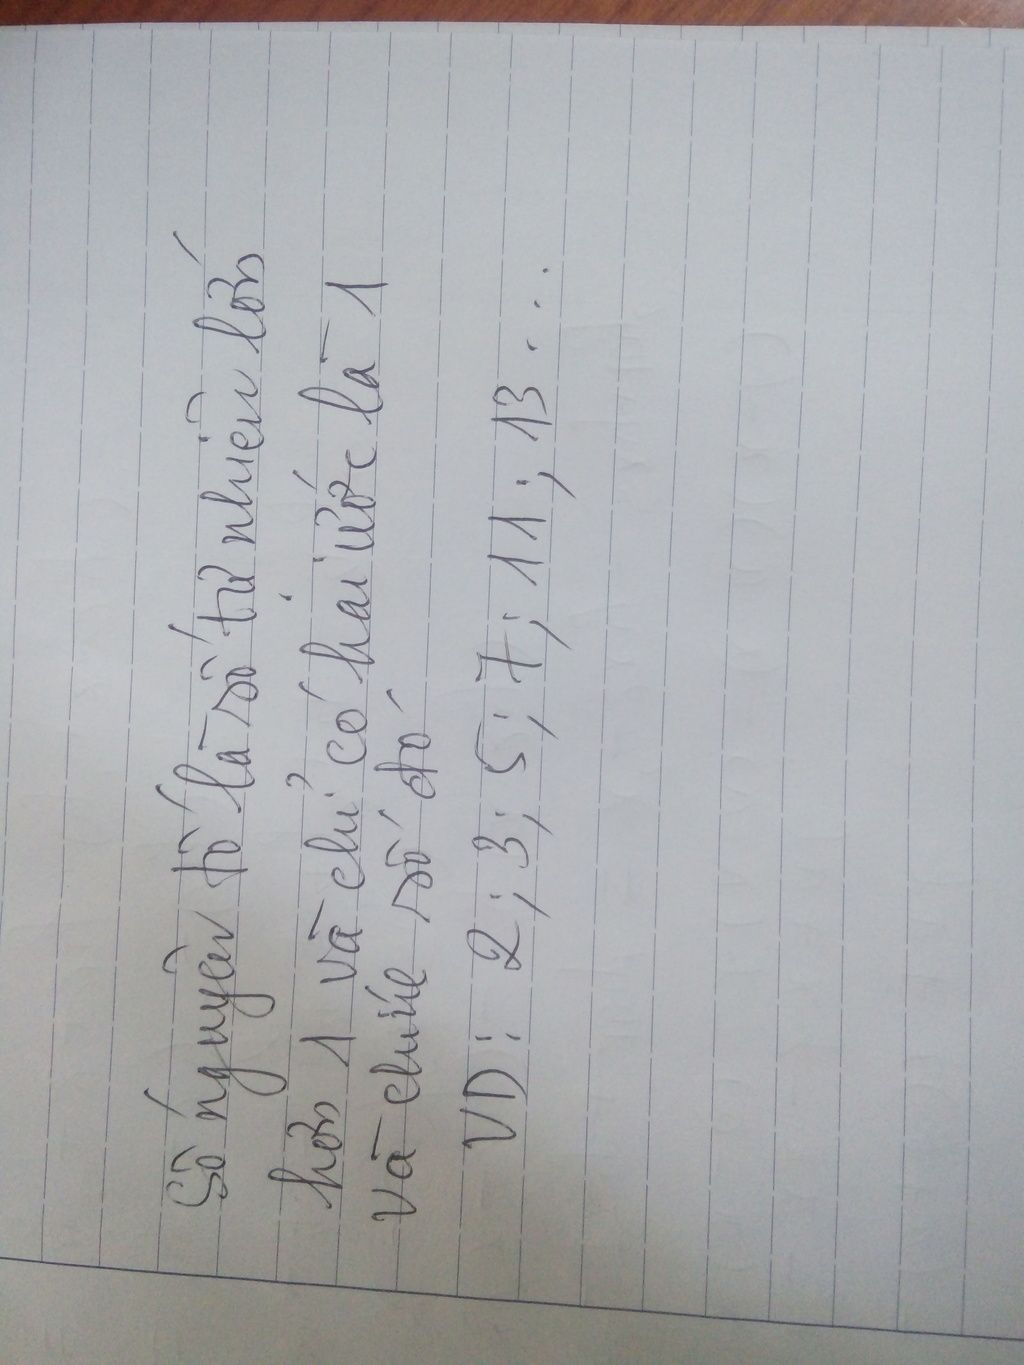 Số nguyên tố là số tự nhiên lớn
hơn 1 và chỉ có hai ước là 1
và chính số đó
VD: 2; 3; 5; 7; 11; 13...